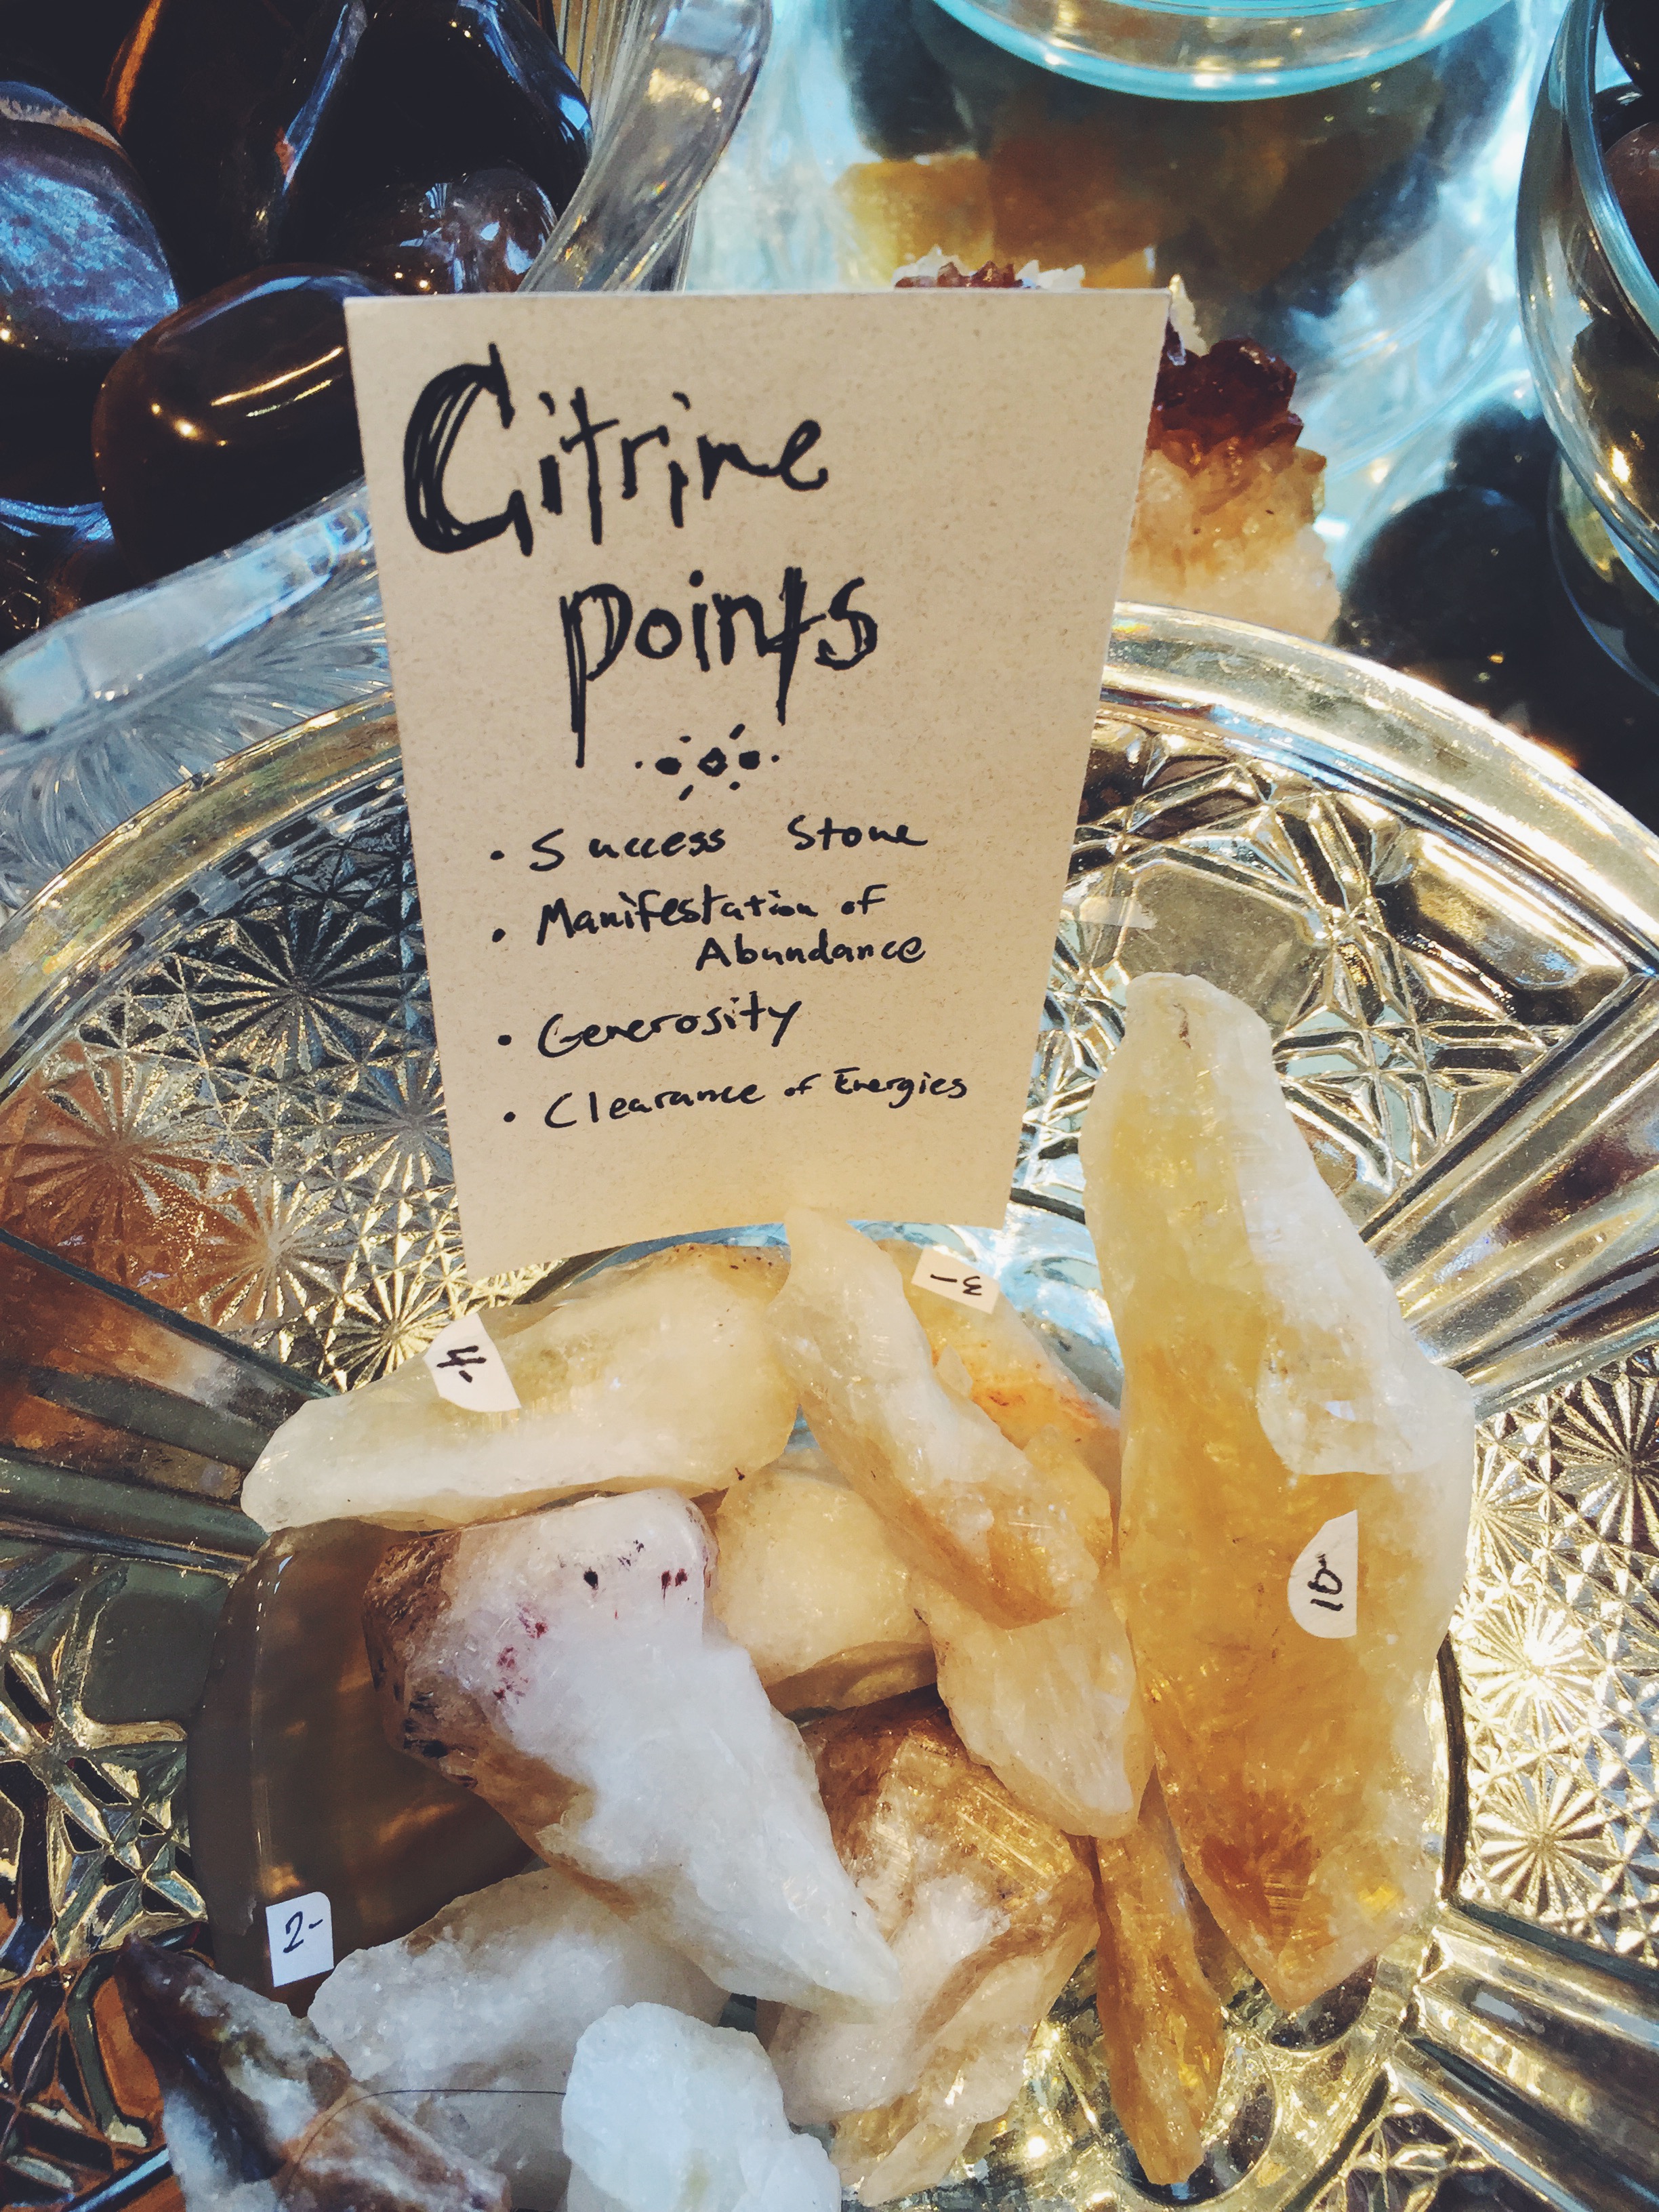 Citrine
points
• Success Stone
• Manifestation of
Abundance
• Generosity
• Clearance of Energies
3-
4-
10-
2-